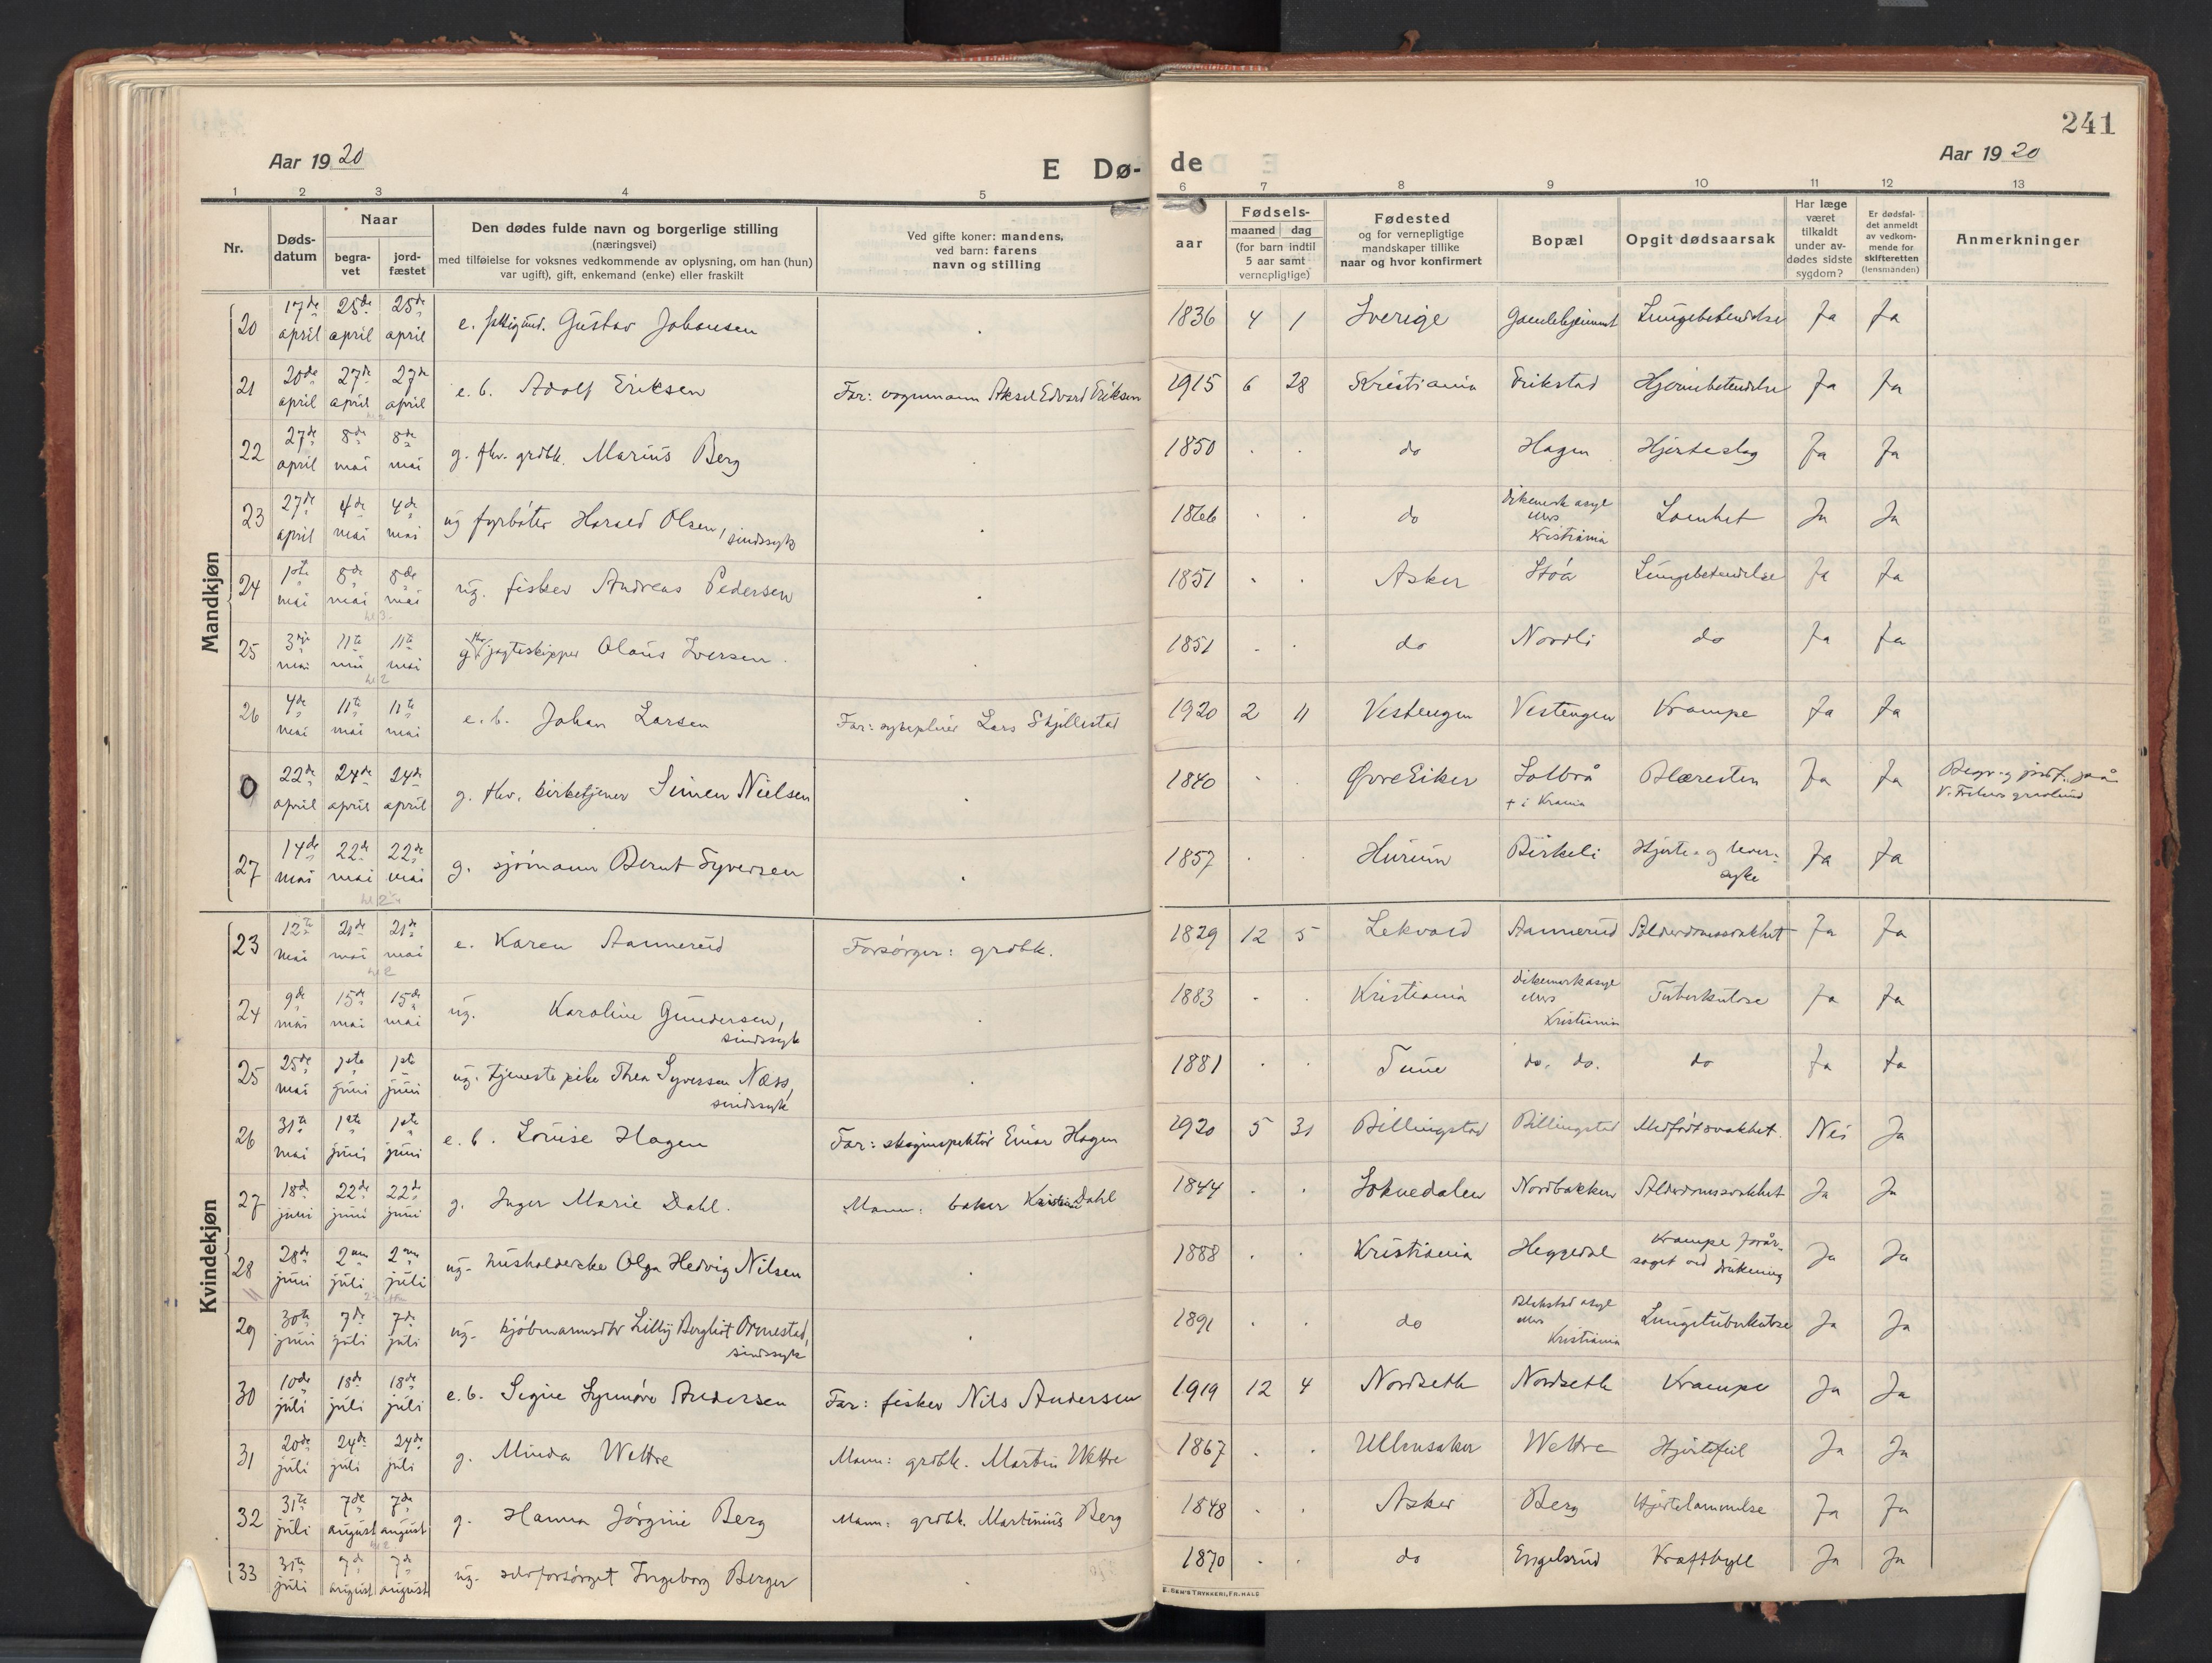 241
Aar 1920
E Dø-
de
Aar 1920
1 2 3 4 5 6 7 8 9 10 11 12 13
Nr.
Døds-
datum
Naar
begra-
vet
jord-
fæstet
Den dødes fulde navn og borgerlige stilling
(næringsvei)
med tilføielse for voksnes vedkommende av oplysning, om han (hun)
var ugift), gift, enkemand (enke) eller fraskilt
Ved gifte koner: mandens,
ved barn: farens
navn og stilling
aar
Fødsels-
maaned dag
(for barn indtil
5 aar samt
vernepligtige)
Fødested
og for vernepligtige
mandskaper tillike
naar og hvor konfirmert
Bopæl
Opgit dødsaarsak
Har læge
været
tilkaldt
under av-
dødes sidste
sygdom?
Er dødsfal-
det anmeldt
av vedkom-
mende for
skifteretten
(lensmanden)
Anmerkninger
Mandkjøn
20 17de april 25de april 25de april e. Gustav Johansen 1836 4 1 Sverige Gamlehjemmet Lungebetendelse Ja Ja
21 20de april 27de april 27de april e. b. Adolf Eriksen Far: vognmann Aksel Edvard Eriksen 1915 6 28 Kristiania Erikstad Hjernebetendelse Ja Ja
22 27de april 8de mai 8de mai g. fhv. grdbk. Marius Berg 1850 do Hagen Hjerteslag Ja Ja
23 27de april 4de mai 4de mai ug fyrbøter Harald Olsen, sindssyk 1866 do Dikemark asyl Kristiania Lamhet Ja Ja
24 1ste mai 8de mai 8de mai ug. fisker Andreas Pedersen 1851 Asker Støa Lungebetendelse Ja Ja
25 3dje mai 11te mai 11te mai g. fhv jagteskipper Olaus Iversen. 1851 do Nordli do Ja Ja
26 4de mai 11te mai 11te mai e. b. Johan Larsen Far: sykepleier Lars Skjillestad 1920 2 11 Vestengen Vestengen Krampe Ja Ja
0 22de april 24de april 24de april g. fhv. kirketjener Simen Nielsen 1840 Øvre Eiker Solbrå + i Krania Blæresten Ja Ja Begr. og jordf. på
V. Frelsers gravlund
27 14de mai 22de mai 22de mai g. sjømann Bernt Syversen 1857 Hurum Birkeli Hjerte- og lever-
syke Ja Ja
Kvindekjøn
23 12te mai 21de mai 21de mai e. Karen Aannerud Forsørger: grdbk. 1829 12 5 Lekvold Aannerud Alderdomssvakhet Ja Ja
24 9de mai 15de mai 15de mai ug. Karoline Gundersen, sindssyk 1883 Kristiania Dikemark asyl Kristiania Tuberkulose Ja Ja
25 25de mai 1ste juni 1ste juni ug. tjenestepike Thea Syversen Næss, sindssyk 1881 Tune do. do. do Ja Ja
26 31te mai 1ste juni 1ste juni e. b. Louise Hagen Far: skoginspektør Einar Hagen 1920 5 31 Billingstad Billingstad Medfødt svakhet. Nei Ja
27 18de juni 22de juni 22de juni g. Inger Marie Dahl. Mann: baker Kristian Dahl 1844 Soknedalen Nordbakken Alderdomssvakhet Ja Ja
28 28de juni 2nen juli 2nen juli ug. husholderske Olga Hedvig Nilsen 1888 Kristiania Heggedal Krampe forår-
saget ved drukning Ja Ja
29 30te juni 7de juli 7de juli ug. kjøbmannsdtr Lilly Bergliot Ormestad, sindssyk 1891 do Blakstad asyl Kristiania Lungetuberkulose Ja Ja
30 10de juli 18de juli 18de juli e. b. Signe Synnøve Andersen Far: fisker Nils Andersen 1919 12 4 Nordseth Nordseth Krampe Ja Ja
31 20de juli 24de juli 24de juli g. Minda Wettre Mann: grdbk. Martin Wettre 1867 Ullensaker Wettre Hjertefeil Ja Ja
32 31te juli 7de august 7de august g. Hanna Jørgine Berg Mann: grdbk. Martinius Berg 1848 Asker Berg Hjertelammelse Ja Ja
33 31te juli 7de august 7de august ug. selvforsørget Ingeborg Berger 1870 do Engelsrud Kræftbyll Ja Ja
E. SEM'S TRYKKERI, FR.HALD